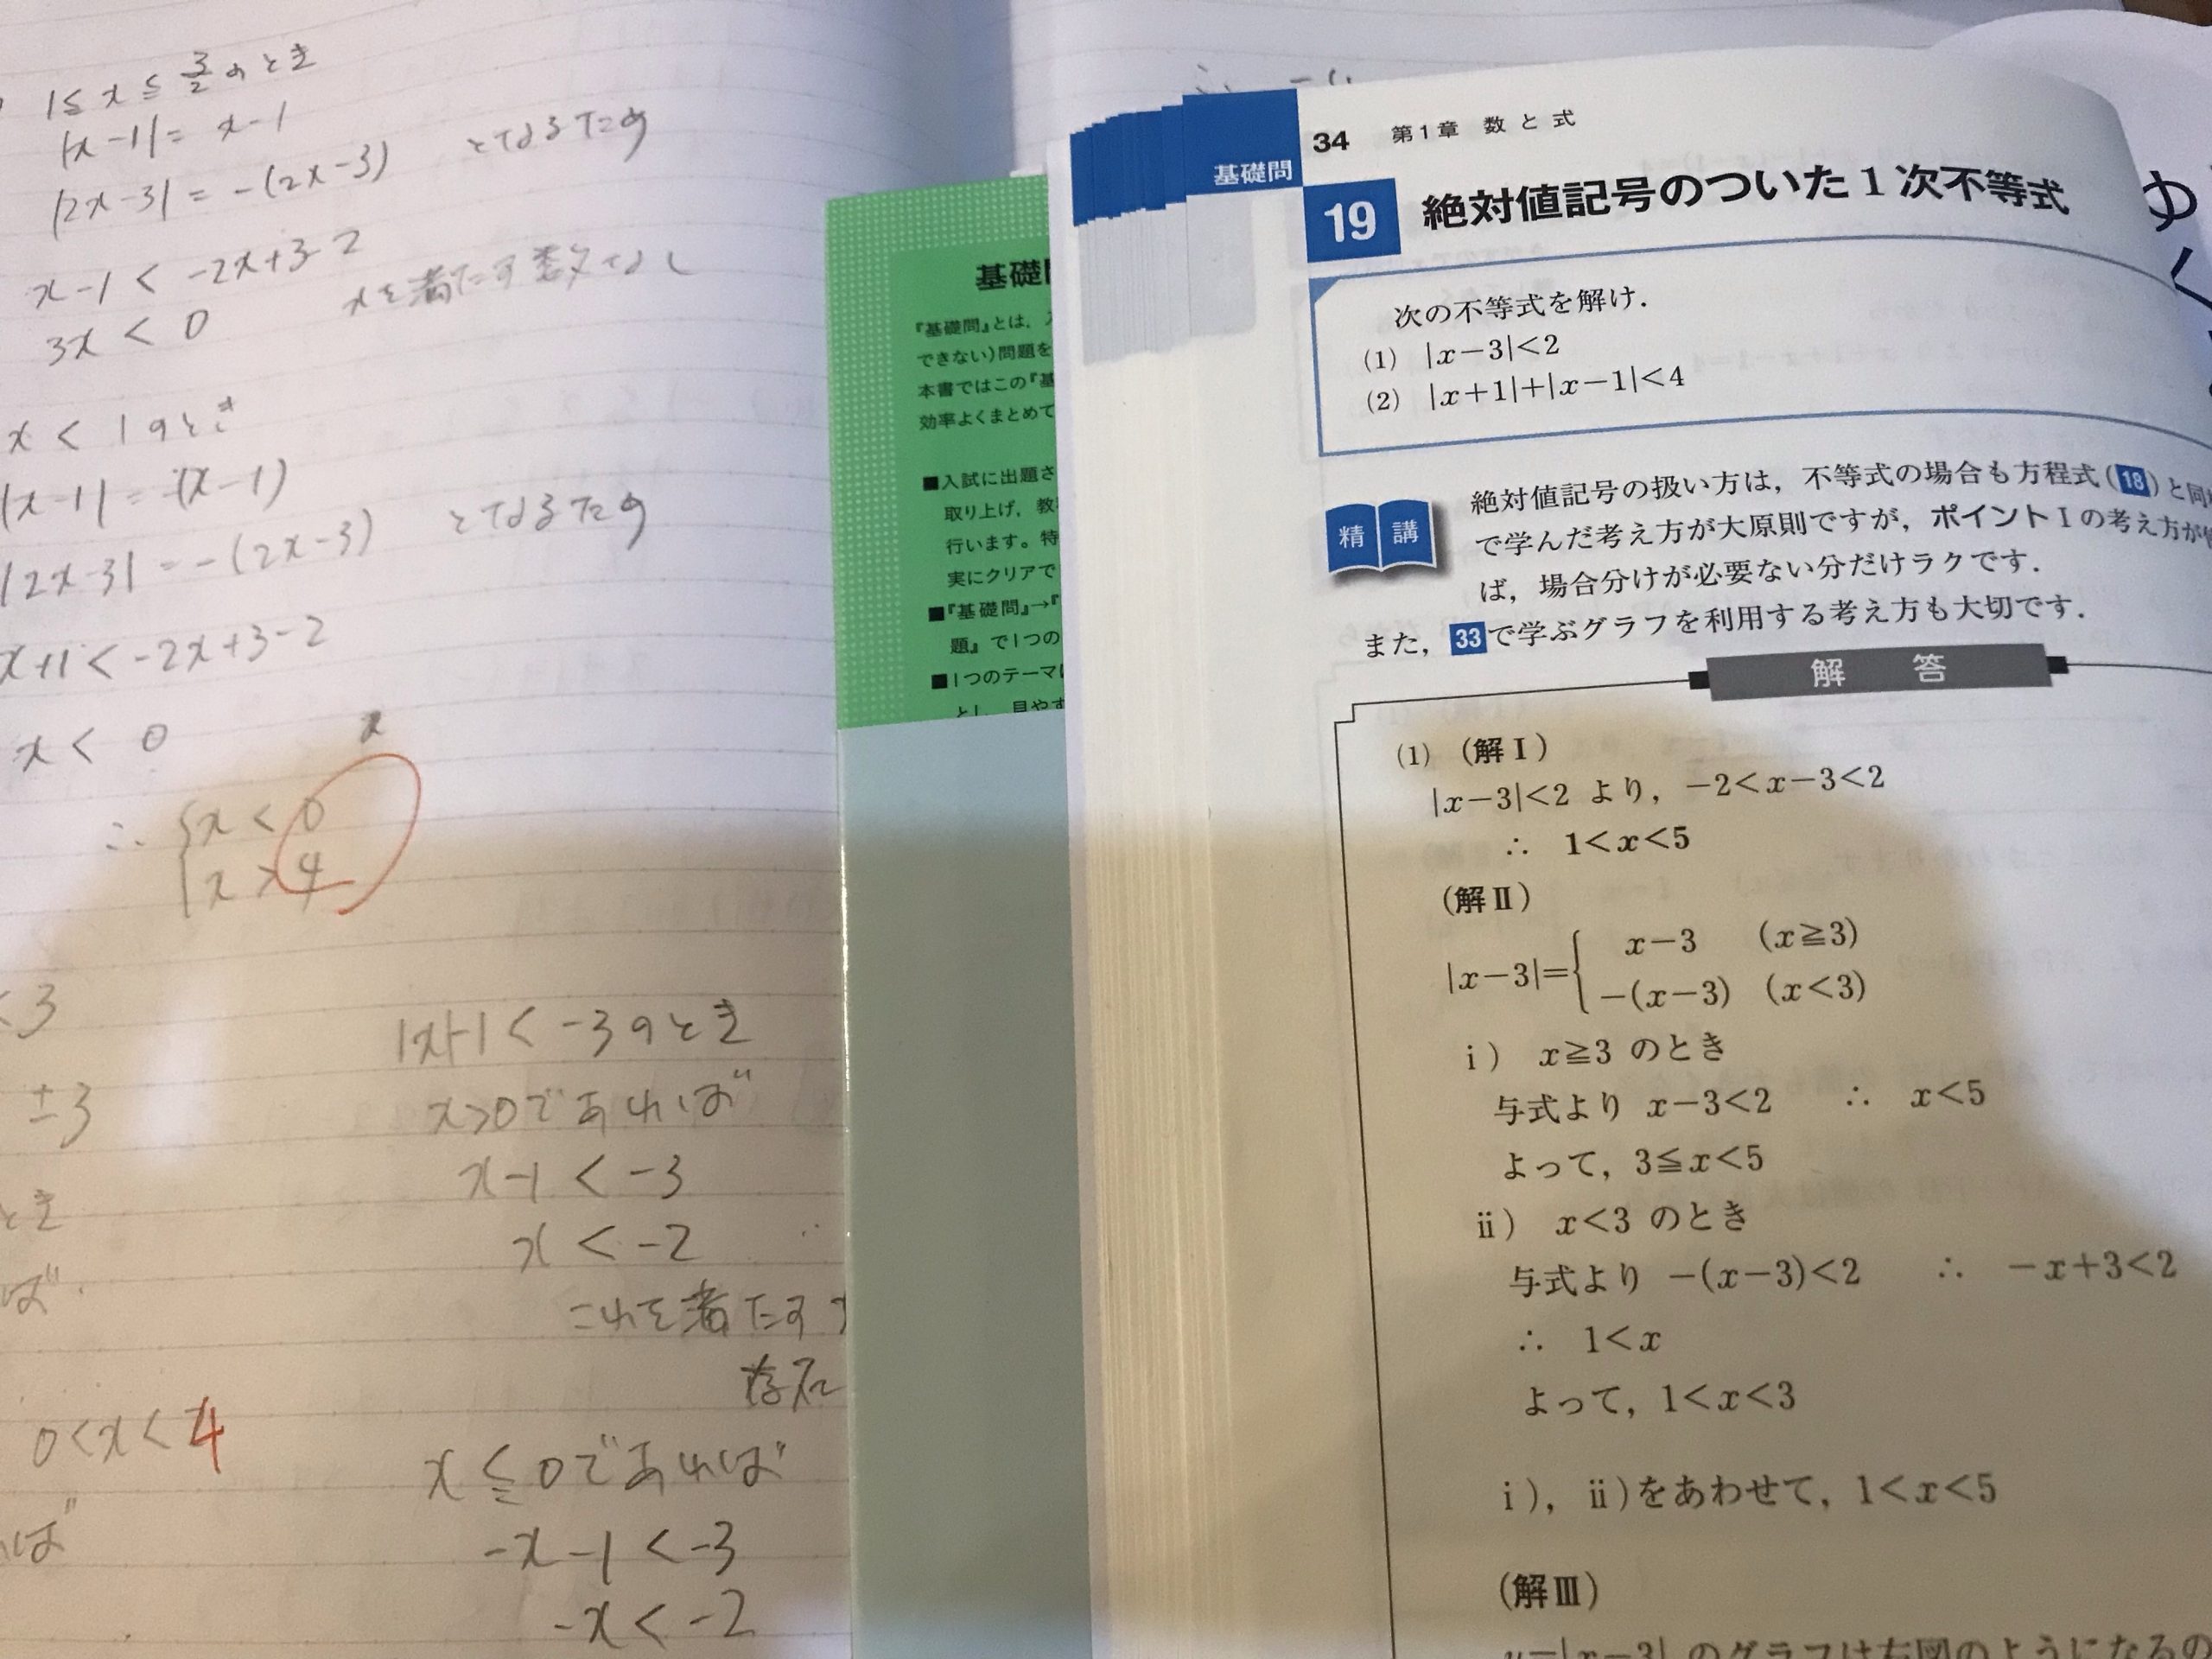 1≦x≦3/2のとき
|x-1|= x-1
|2x-3| = -(2x-3) となるため
x-1 < -2x+3-2
3x < 0
x < 1のとき
|x-1| = -(x-1)
|2x-3| = -(2x-3) となるため
x+1 < -2x+3-2
x < 0
∴ {x < 0
x > 4
<3
±3
とき
ば
0<x<4
れば
|x|-1 < -3のとき
x>0であれば
x-1 < -3
x < -2
これを
x≦0であれば
-x-1 < -3
-x < -2
基礎
『基礎問』とは,
できない)問題を
本書ではこの『基
効率よくまとめて
■入試に出題さ
取り上げ, 教
行います。特
実にクリアで
■『基礎問』→『
題』で1つの
■1つのテーマ
とし, 見やす
基礎問
34 第1章 数と式
19 絶対値記号のついた1次不等式
次の不等式を解け.
(1) |x-3|<2
(2) |x+1|+|x-1|<4
精講
絶対値記号の扱い方は, 不等式の場合も方程式(18)と同
で学んだ考え方が大原則ですが, ポイントⅠの考え方が
ば, 場合分けが必要ない分だけラクです.
また, 33で学ぶグラフを利用する考え方も大切です.
解答
(1) (解Ⅰ)
|x-3|<2 より, -2<x-3<2
∴ 1<x<5
(解Ⅱ)
|x-3|={ x-3 (x≧3)
-(x-3) (x<3)
ⅰ) x≧3 のとき
与式より x-3<2 ∴ x<5
よって, 3≦x<5
ⅱ) x<3 のとき
与式より -(x-3)<2 ∴ -x+3<2
∴ 1<x
よって, 1<x<3
ⅰ), ⅱ)をあわせて, 1<x<5
(解Ⅲ)
y=|x-3| のグラフは右図のようになるの